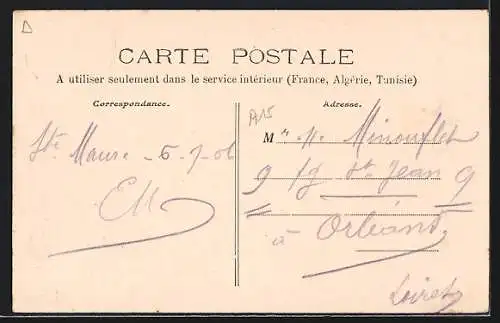 CARTE POSTALE
A utiliser seulement dans le service intérieur (France, Algérie, Tunisie)
Correspondance.
Adresse.
A15
Ste Maure - 6-7-06
EM
M
Minouflet
9 fg St Jean 9
Orléans
Loiret